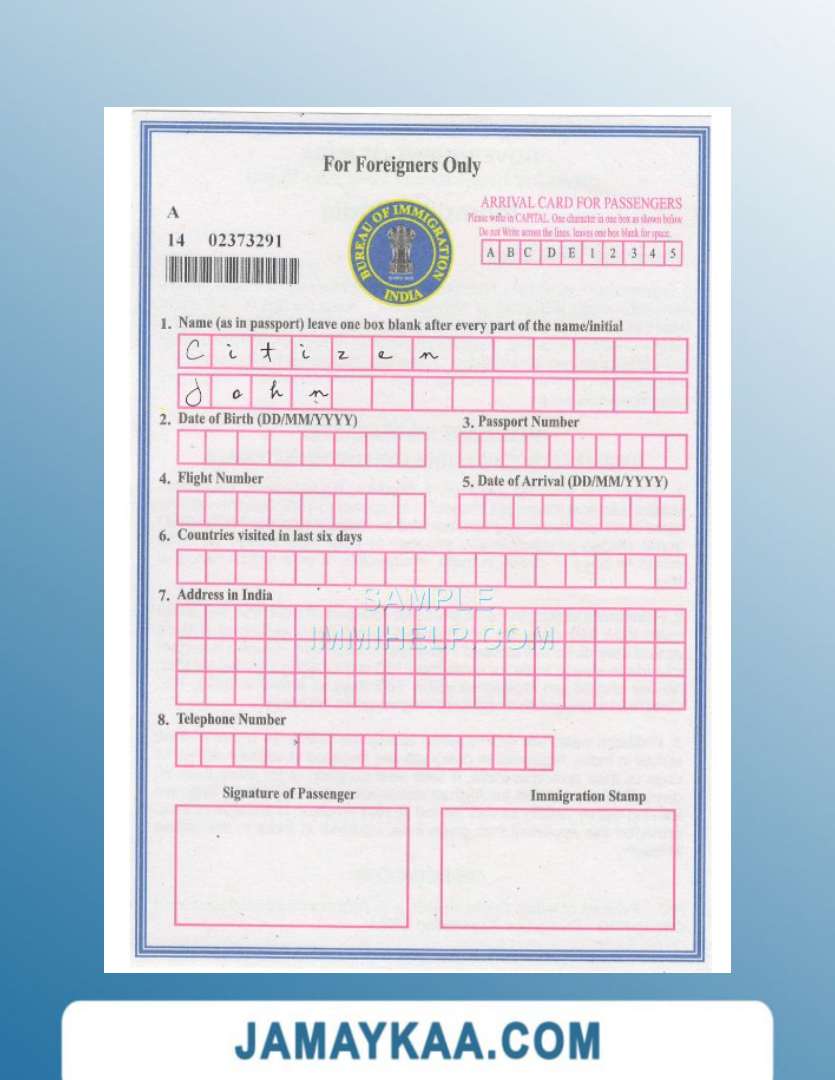 For Foreigners Only
A
14 02373291
BUREAU OF IMMIGRATION
INDIA
ARRIVAL CARD FOR PASSENGERS
Please write in CAPITAL. One character in one box as shown below
Do not Write across the lines. leaves one box blank for space.
A B C D E 1 2 3 4 5
1. Name (as in passport) leave one box blank after every part of the name/initial
Citizen
John
2. Date of Birth (DD/MM/YYYY)
3. Passport Number
4. Flight Number
5. Date of Arrival (DD/MM/YYYY)
6. Countries visited in last six days
7. Address in India
SAMPLE
IMMIHELP.COM
8. Telephone Number
Signature of Passenger
Immigration Stamp
JAMAYKAA.COM